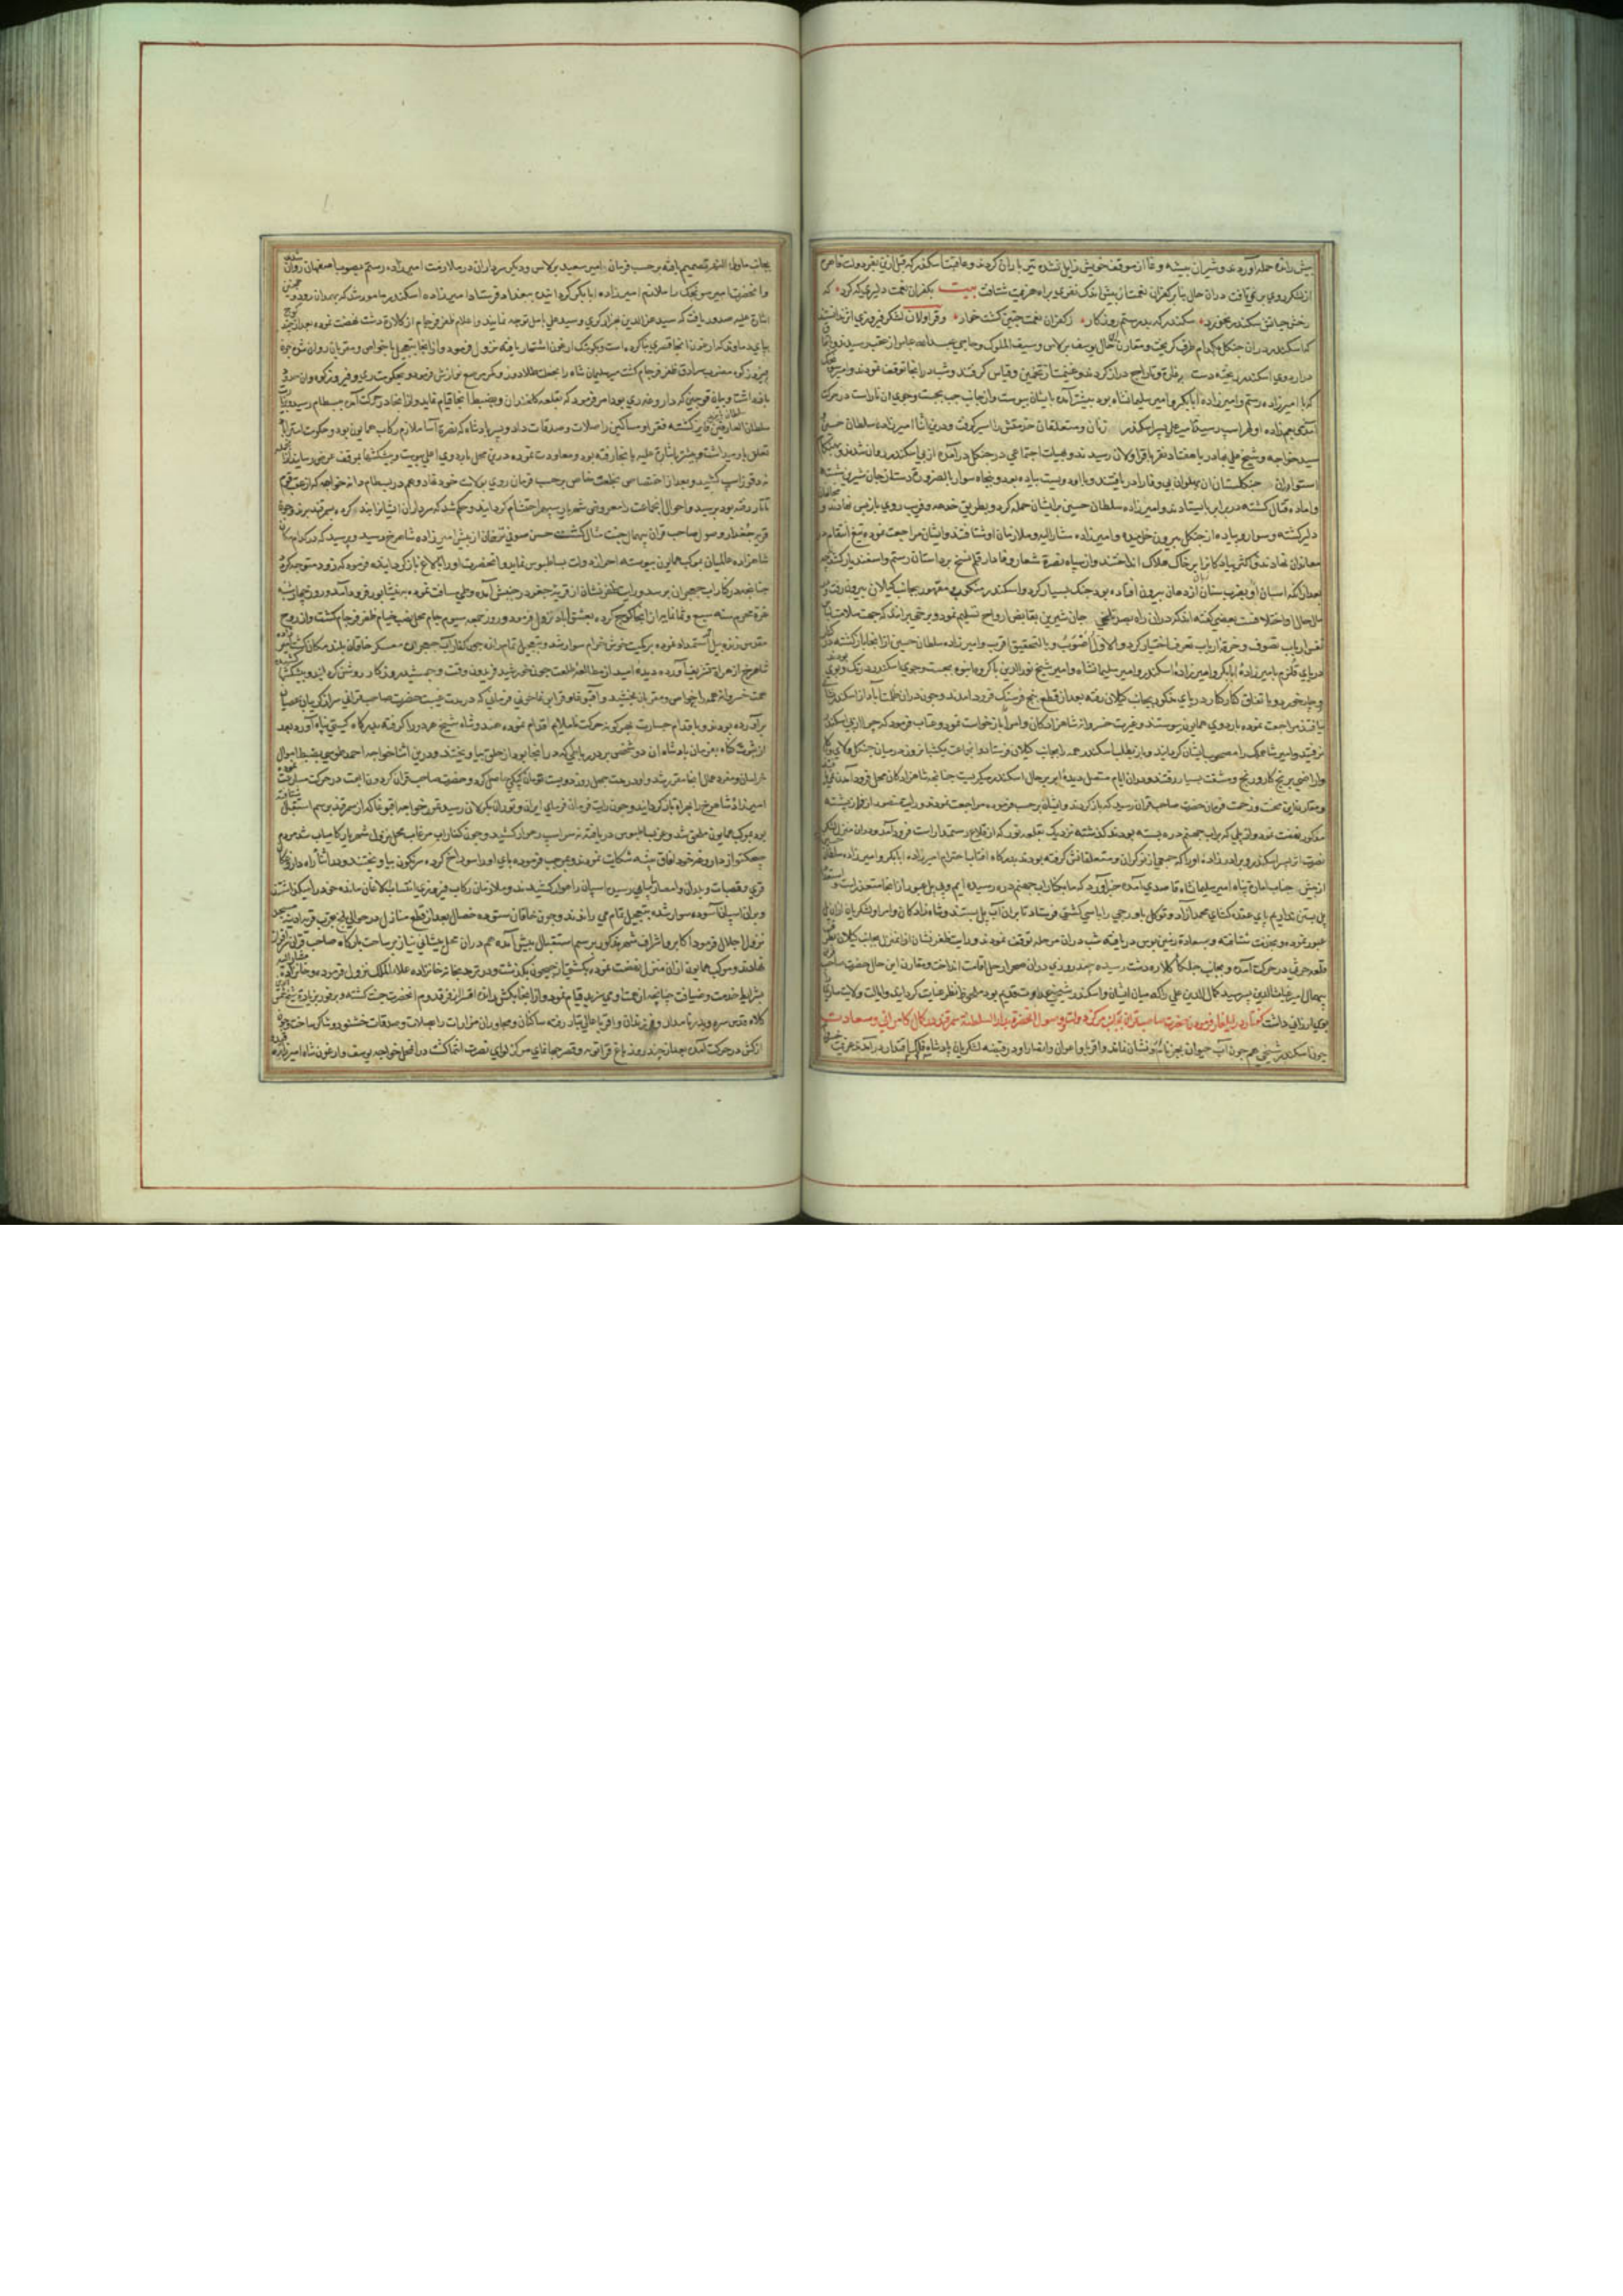 پیش رانده حمله آوردند و شیران بیشه وغا از موقف خویش زایل نشده تیر باران کردند و عاقبت اسکندر که قبل ازین بفر دولت قاهره
از لشکر روی بر نمی تافت دران حال بنابر کفران نعمت از پیش اندک نفری براه هزیمت شتافت بیت بکفران نعمت دلیری که کرد که
رخش حیاتش سکندر نخورد سکندر که بد رستم روزگار ز کفران نعمت چنین گشت خوار و قراولان لشکر فیروزی اثر
که اسکندر دران جنگل بکدام طرف گریخت و مقارن حال یوسف برلاس و سیف الملوک و حاجی عبدالله عباس از عقب رسیدند و
در اردوی اسکندر ریخته دست بغارت و تاراج دراز کردند و غنیمت از تخمین و قیاس گرفتند و شب در آنجا توقف نمودند و امیر سونجک
که با امیرزاده رستم و امیرزاده ابابکر و امیر سلیمانشاه بود پیشتر آمده بایشان پیوست و از جانب چپ بجست و جوی ان ناراست در حرکت
آمدی عم زاده او لهراسب رسید با میر علی پسر اسکندر زنان و متعلقان حرمش را اسیر گرفت و درین اثنا امیرزاده سلطان حسین
سید خواجه و شیخ علی بهادر با هفتاد نفر بقراولان رسیدند و بهیات اجتماعی در جنگل در آمده از پی اسکندر روان شدند و
استواران جنگلستان ان پهلوان بی وفا را دریافتند و با او دویست پیاده بود و پنجاه سوار بالضرورة دست از جان شیرین شسته
و آماده قتال گشته در برابر بایستادند و امیرزاده سلطان حسین بر ایشان حمله کرد و بطریق خدعه و فریب روی باز پس نهادند و
دلیر گشته و سوار و پیاده از جنگل بیرون خرامید و امیرزاده مشار الیه و ملازمان او شتافتند و ایشان مراجعت نموده تیغ انتقام در
معاندان نهادند و اکثر پیادگانرا بر خاک هلاک انداختند و از سپاه نصرة شعار وفادار رقم نسخ بر داستان رستم و اسفندیار کشیده
بعد ازانکه اسبان او بضرب سنان ازدهان بیرون افتاده بود جنگ بسیار کرد و اسکندر منکوب و مقهور بجانب گیلان بیرون رفت و
مآل حال او اختلافست بعضی گفته اند که دران راه بصد تلخی جان شیرین بقابض ارواح تسلیم نمود و برخی برانند که جهت سلامت
نفس لباس ارباب تصوف و خرقه ارباب تعرف اختیار کرد و الاول اصوب و بالتحقیق اقرب و امیرزاده سلطان حسین از آنجا باز گشته در کنار
دریای قلزم بامیرزاده ابابکر و امیرزاده اسکندر و امیر سلیمانشاه و امیر شیخ نورالدین با گروهی انبوه بجست و جوی اسکندر
و چار خورد و باتفاق کنار کنار دریای مذکور بجانب گیلان رفته بعد از قطع پنج فرسنگ فرود امدند و چون دران ظلمات آباد از اسکندر نشانی
نیافتند مراجعت نموده باردوی همایون پیوستند و غیرت خسروانه شاهزادگان و امرا را بازخواست نمود و عتاب فرمود که چرا از پی اسکندر
نرفتید و امیر شاهملک را مصحوب ایشان گردانید و باز بطلب اسکندر همه را بجانب گیلان فرستاد انجماعت یکشبانروز در میان جنگل و لای و گل
و اراضی برنج کار و رنج و مشقت بسیار رفتند و دران ایام متصل دیده ابر بر حال اسکندر میگریست چنانچه شاهزادگان محل فرود آمدن نمی یافتند
و مقارن این محنت و زحمت فرمان حضرت صاحبقران رسید که باز گردند و ایشان بر حسب فرموده مراجعت نمودند و رایت منصور از قرار پیشته
مذکور نهضت نمود و از پلی که بر آب جهنم دره بسته بودند گذشته نزدیک بقلعه نور که از قلاع رستمدار است فرود آمد و دران منزل
نصرت اثر پسر اسکندر و برادرزاده او را که جمعی از نوکران و متعلقانش گرفته بودند بدرگاه افتاب احترام امیرزاده ابابکر و امیرزاده سلطان حسین
از پیش جناب امارت پناه امیر سلیمانشاه قاصدی آمده خبر آورد که ما بکنار اب جهنم دره رسیده ایم و بی پل عبور از انجا متعذر است و استعداد
پل بستن نداریم پای عقده گشای محمد آزاد و توکل باورچی را با سی کشتی فرستاد تا بران آب پل بستند و شاهزادگان و امرا و لشکریان ازان پل
عبور نموده و بعزت شتافته و بسعادت زمین بوس دریافته شب دران مرحله توقف نمودند و رایت ظفر نشان ازان منزل بجانب گیلان
قلعه حریف در حرکت آمده و بجانب جلگاه کلاره دشت رسیده چند روزی دران صحرا رحل اقامت انداخت و مقارن این حال حضرت صاحبقران
بهحال امیر غیاث الدین پسر سید کمال الدین علی را که میان ایشان و اسکندر شیخی عداوت قدیم بود ملحوظ نظر عنایت گردانید و ایالت ولایت ساری
بوی ارزانی داشت گفتار در ایلغار فرمودن حضرت صاحبقران بجانب مرکز دولت و وصول آنحضرت بدار السلطنه سمرقند در کمال کامرانی و سعادت
چون از اسکندر شیخی هم چون آب حیوان بجز نام و نشان نماند و اقربا و اعوان و انصار او در قبضه لشکریان پادشاه فلک اقتدار در آمدند عزیمت
بجانب ماوراء النهر تصمیم یافته بر حسب فرمان امیر سعید برلاس و دیگر سرداران در ملازمت امیرزاده رستم بصوب اصفهان روان شدند
و آنحضرت امیر سونجک را ملازم امیرزاده ابابکر گردانیده ببغداد فرستاد امیرزاده اسکندر مامور شد که بهمدان رود و
اشارة علیه صدور یافت که سید عزالدین هزارگری و سید علی بآمل توجه نمایند و اعلام ظفر فرجام از کلاره دشت نهضت نموده بعد از چند
بپای دماوند که ارغون انجا قصری بنا کرده است و بکوشک ارغون اشتهار یافته نزول فرمود و از انجا بتعجیل با خواص و مقربان روان شده چون
فیروزکوه مضرب سرادق ظفر فرجام گشت سلیمان شاه را بخلعت طلادوز و کمر مرصع نوازش فرمود و بحکومت ری و فیروزکوه وان حدود
باز داشت و بیان قوجین که داروغه ری بود امر فرمود که بقلعه گلخندان و بضبط آنجا قیام نماید و از انجا در حرکت آمده ببسطام رسید و زیارت
سلطان العارفین بایزید فایز گشته فقرا و مساکین را صلات و صدقات داد و پسر پادشاه که نصرة آسا ملازم رکاب همایون بود و حکومت استراباد
تعلق بدو میداشت و پیشتر باشارة علیه بانجا رفته بود و معاودت نموده درین محل باردوی اعلی پیوست و پیشکشها بموقف عرض رسانید
نه دقوز اسب کشید و بعد از اختصاص بخلعت خاص بر حسب فرمان روی بولایت خود نهاد و هم در بسطام دانه خواجه که از عقب قوم
تاتار رفته بود برسید و احوال انجماعت را معروض شهریار سپهر احتشام گردانید و حکم شد که سرداران ایشانرا بند کرده بسمرقند برند و چون
قریه جغدار و سول صاحب قران بهمال جنت مثال گشت حسن صوفی ترخان از پیش امیرزاده شاهرخ رسید و پرسید که در کدام مکان
شاهزاده عالمیان بموکب همایون پیوسته احراز دولت بساط بوس نماید و آنحضرت او را بایلاغ باز گردانیده فرمود که زود متوجه گردد
چنانچه در کنار اب جهجران برسد و رایت ظفر نشان از قریه جغدر در جنبش آمده و طی مسافت نموده به نیشابور فرود آمد و روز پنجشنبه
غره محرم سنه سبع و ثمانمایه از انجا کوچ کرده بعشق آباد نزول فرمود و روز جمعه سیوم جام محل نصب خیام ظفر فرجام گشت و از روح
مقدس ژنده پیل استمداد نموده بر کمیت خوش خرام سوار شد و بتعجیل تمام رانده چون کنار آب جهجران معسکر خاقان بلند مکان گشت امیرزاده
شاهرخ از هراة تشریف آورده دیده امید از مطالعه طلعت چون خورشید فریدون وقت و جمشید روزگار روشن گردانید و پیشکشها
همت خسروانه همه را بخواص و مقربان بخشید و آقبوغا و قرابوغا خونی قربانی که در مدت غیبت حضرت صاحبقرانی سر از گریبان عصیان
برآورده بودند و باقدام جسارت بحرکت ناملایم اقدام نموده هندو شاه شیخ هر دو را گرفته بدرگاه گیتی پناه آورد بعد
از ثبوت گناه بفرمان پادشاه ان دو شخص بر در رباطی که در انجا بود از حلق بیاویختند و درین اثنا خواجه احمد طوسی بضبط اموال
خراسان و مفرد عمال انجا مقرر شد و او در مدت چهل روز دویست تومان کپکی حاصل کرد و حضرت صاحبقران گردون ابهت در حرکت مبادرت نموده
امیرزاده شاهرخ را بهراة باز گردانید و چون رایت فرمان فرمای ایران و توران بگیلان رسید تمور خواجه آقبوغا که از سمرقند برسم استقبال شتافته
بود بموکب همایون ملحق شد و عز بساط بوس دریافته نه سر اسب راهوار کشید و چون کنار اب مرغاب محل نزول شهریار کامیاب شد مردم
چیچکتو از داروغه خود اقاق پیشه شکایت نمودند و بموجب فرموده پای او را سوراخ کرده سرنگون بیاویختند و در اثناء راه داروغگان
قری و قصبات و بلدان و امصار پیاپی رسیده اسبان راهوار کشیدند و ملازمان رکاب فیروزی انتساب الاغان مانده خود را میگذاشتند
و بران اسبان آسوده سوار شده بتعجیل تمام می راندند و چون خاقان ستوده خصال بعد از قطع منازل در حوالی بلخ بقریه
نزول اجلال فرمود اکابر و اشراف شهر مذکور برسم استقبال پیش آمده هم دران محل پیشانی نیاز بر ساحت بارگاه صاحب قران
نهادند و موکب همایون ازان منزل نهضت نموده بکشتی از جیحون بگذشت و در ترمد بخانه خانزاده علاء الملک نزول فرموده و خانزاده
بشرایط خدمت و ضیافت چنانچه از همت او می سزید قیام نمود و از انجا بکش رانده اقسرا ز فر قدوم انحضرت جنت گشته و بر فور بزیارة شیخ شمس
کلاه قدس سره و پدر نامدار و فرزندان و اقربا عالی تبار رفته ساکنان و مجاوران مزارات را بصلات و صدقات خشنود و شاکر ساخت و چون
از کش در حرکت آمده بعد از چند روز باغ قراتوبه و قصر جهانمای مرکز لوای نصرت انتما گشت و در انمحل خواجه یوسف و ارغونشاه امیر